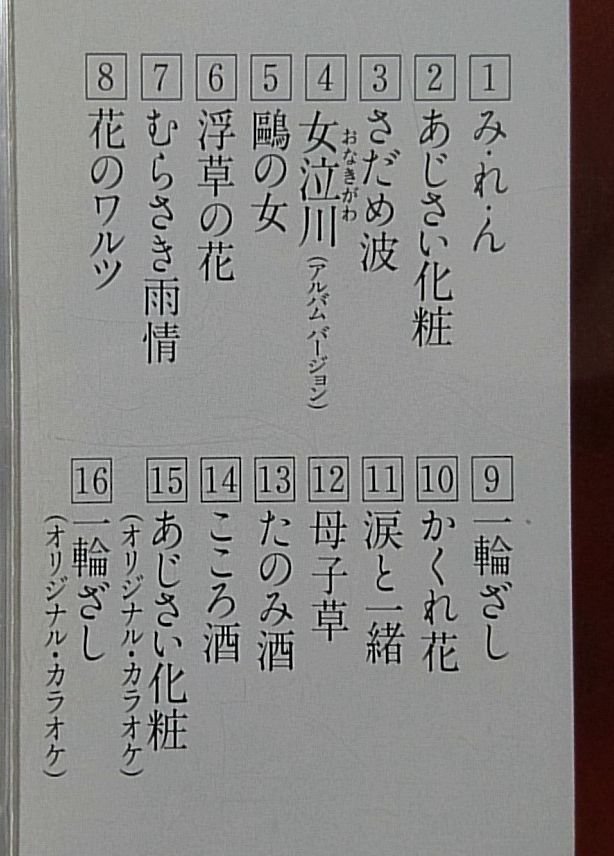 1 み・れ・ん
2 あじさい化粧
3 さだめ波
4 女泣川(アルバムバージョン)
おなきがわ
5 鷗の女
6 浮草の花
7 むらさき雨情
8 花のワルツ
9 一輪ざし
10 かくれ花
11 涙と一緒
12 母子草
13 たのみ酒
14 こころ酒
15 あじさい化粧
(オリジナル・カラオケ)
16 一輪ざし
(オリジナル・カラオケ)